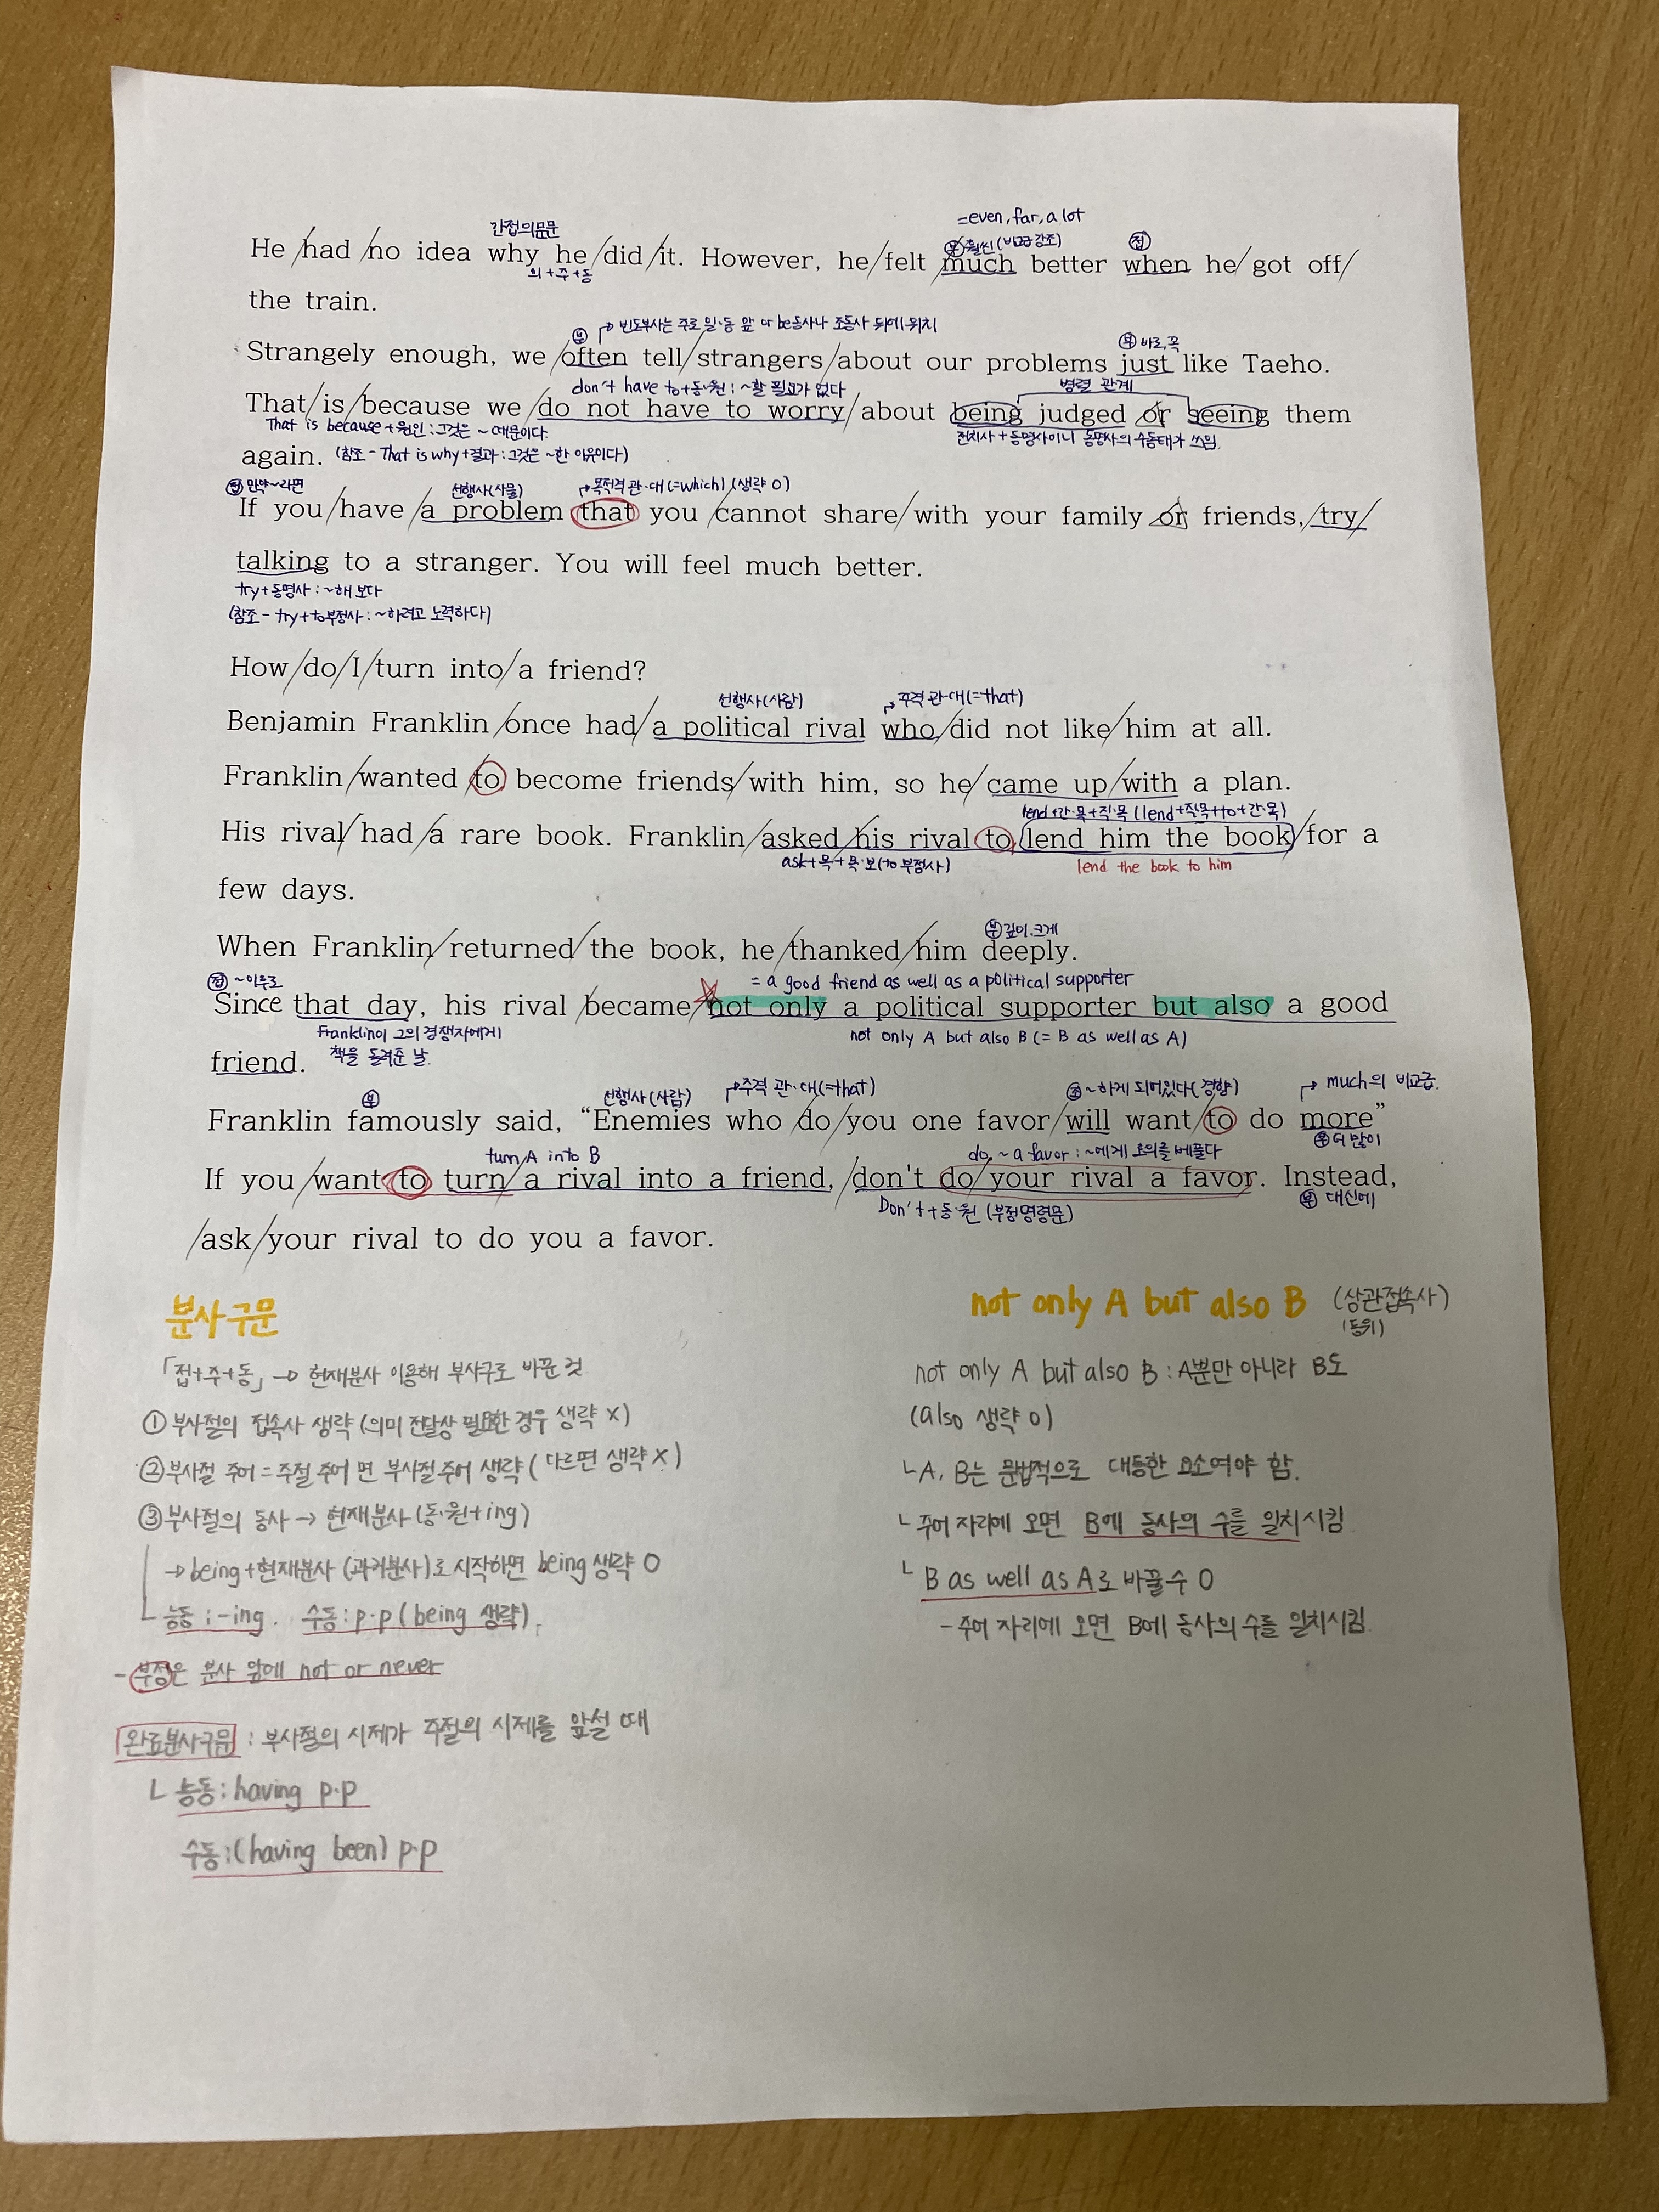 간접의문문
=even, far, a lot
부 훨씬 (비교급 강조)
접
He had no idea why he did it. However, he felt much better when he got off
의+주+동
the train.
부 빈도부사는 주로 일·동 앞 or be동사나 조동사 뒤에 위치
부 바로, 꼭
Strangely enough, we often tell strangers about our problems just like Taeho.
don't have to+동·원 : ~할 필요가 없다
병렬 관계
That is because we do not have to worry about being judged or seeing them
That is because + 원인 : 그것은 ~ 때문이다.
전치사 + 동명사이니 동명사의 수동태가 쓰임.
again. (참조 - That is why + 결과 : 그것은 ~한 이유이다)
접 만약 ~라면
선행사(사물)
목적격 관·대 (=which) (생략 O)
If you have a problem that you cannot share with your family or friends, try
talking to a stranger. You will feel much better.
try+동명사 : ~해 보다
(참조 - try+to부정사 : ~하려고 노력하다)
How do I turn into a friend?
선행사(사람)
주격 관·대(=that)
Benjamin Franklin once had a political rival who did not like him at all.
Franklin wanted to become friends with him, so he came up with a plan.
lend+간·목+직·목 (lend+직목+to+간·목)
His rival had a rare book. Franklin asked his rival to lend him the book for a
ask+목+목·보(to 부정사)
lend the book to him
few days.
부 깊이, 크게
When Franklin returned the book, he thanked him deeply.
접 ~이후로
= a good friend as well as a political supporter
Since that day, his rival became not only a political supporter but also a good
Franklin이 그의 경쟁자에게
not only A but also B (= B as well as A)
friend. 책을 돌려준 날.
부
선행사(사람)
주격 관·대(=that)
조 ~하게 되어있다(경향)
much의 비교급.
Franklin famously said, “Enemies who do you one favor will want to do more”
부 더 많이
turn A into B
do ~ a favor : ~에게 호의를 베풀다
If you want to turn a rival into a friend, don't do your rival a favor. Instead,
Don't + 동·원 (부정명령문)
부 대신에
ask your rival to do you a favor.
분사구문
「접+주+동」 → 현재분사 이용해 부사구로 바꾼 것
① 부사절의 접속사 생략 (의미 전달상 필요한 경우 생략 X)
② 부사절 주어 = 주절 주어 면 부사절 주어 생략 (다르면 생략 X)
③ 부사절의 동사 → 현재분사 (동·원+ing)
→ being+현재분사 (과거분사)로 시작하면 being 생략 O
└ 능동 : -ing. 수동 : p·p (being 생략).
- 부정은 분사 앞에 not or never
완료분사구문 : 부사절의 시제가 주절의 시제를 앞설 때
└ 능동 : having p·p
수동 : (having been) p·p
not only A but also B (상관접속사)
(등위)
not only A but also B : A뿐만 아니라 B도
(also 생략 O)
└ A, B는 문법적으로 대등한 요소여야 함.
└ 주어 자리에 오면 B에 동사의 수를 일치시킴
└ B as well as A로 바꿀 수 O
- 주어 자리에 오면 B에 동사의 수를 일치시킴.